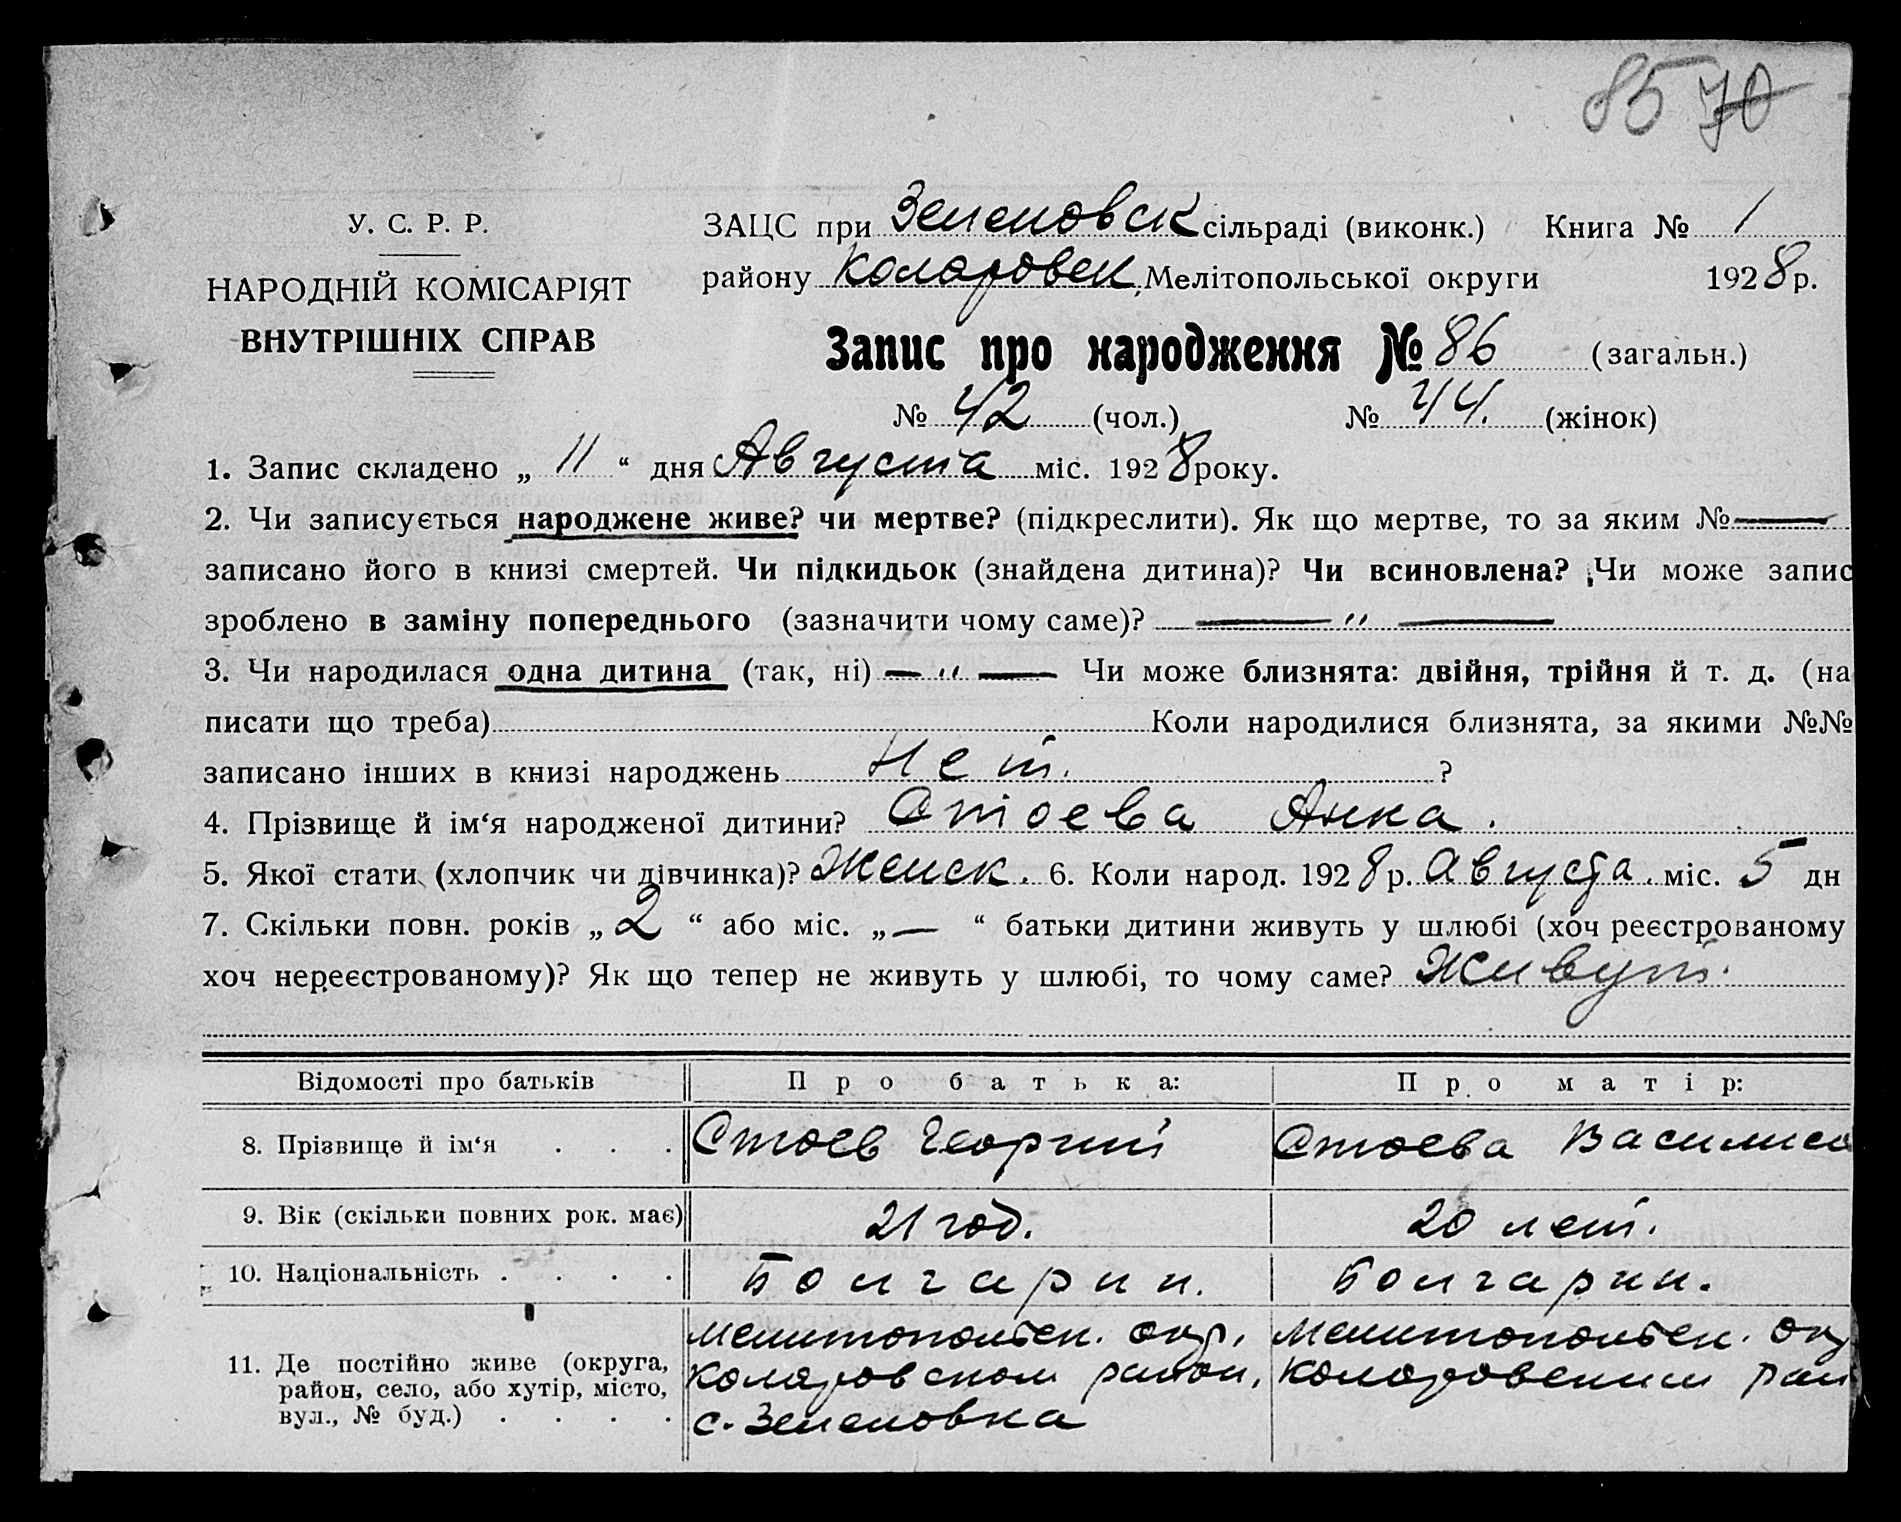 85 70
У. С. Р. Р.
НАРОДНІЙ КОМІСАРІЯТ
ВНУТРІШНІХ СПРАВ
ЗАЦС при Зеленовск сільраді (виконк.) Книга № 1
району Коларовск, Мелітопольської округи 1928 р.
Запис про народження № 86 (загальн.)
№ 42 (чол.) № 44. (жінок)
1. Запис складено „ 11 “ дня Августа міс. 1928 року.
2. Чи записується народжене живе? чи мертве? (підкреслити). Як що мертве, то за яким № —
записано його в книзі смертей. Чи підкидьок (знайдена дитина)? Чи всиновлена? Чи може запис
зроблено в заміну попереднього (зазначити чому саме)? — " —
3. Чи народилася одна дитина (так, ні) — " — Чи може близнята: двійня, трійня й т. д. (на
писати що треба) Коли народилися близнята, за якими №№
записано інших в книзі народжень Нет. ?
4. Прізвище й ім‘я народженої дитини? Стоева Анна.
5. Якої стати (хлопчик чи дівчинка)? Женск. 6. Коли народ. 1928 р. Августа. міс. 5 дн
7. Скільки повн. років „ 2 “ або міс. „ — “ батьки дитини живуть у шлюбі (хоч реєстрованому
хоч нереєстрованому)? Як що тепер не живуть у шлюбі, то чому саме? Живут.
Відомості про батьків Про батька: Про матір:
8. Прізвище й ім‘я . . . Стоев Георгий Стоева Василиса
9. Вік (скільки повних рок. має) 21 год. 20 лет.
10. Національність . . . . Болгарин. Болгарин.
11. Де постійно живе (округа, Мелитопольск. окр. Мелитопольск. ок
район, село, або хутір, місто, Коларовском район, Коларовским рай
вул., № буд.) . . . . с. Зеленовка